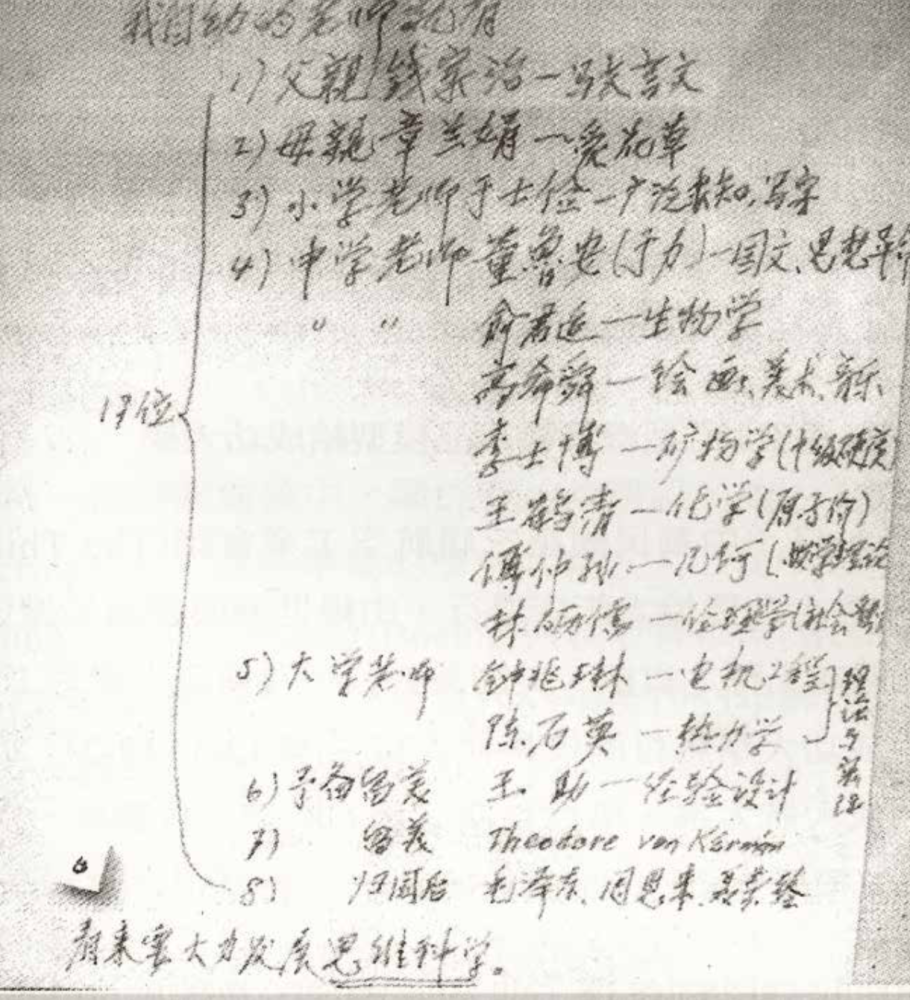 我自幼的老师就有
1) 父親 钱家治—写文言文
2) 母親 章兰娟—爱花草
3) 小学老师于士俭—广泛求知,写字
4) 中学老师 董鲁安(于力)—国文、思想革命
〃 〃 俞君适—生物学
高希舜—绘画、美术、音乐
李士博—矿物学(十级硬度)
17位 王鹤清—化学(原子价)
傅仲孙—几何(数学理论
林砺儒—伦理学(社会
5) 大学老师 钟兆琳—电机工程
陈石英—热力学
理论与实际
6) 予备留美 王助—经验设计
7) 留美 Theodore von Kármán
8) 归国后 毛泽东、周恩来、聂荣臻
看来要大力发展思维科学。